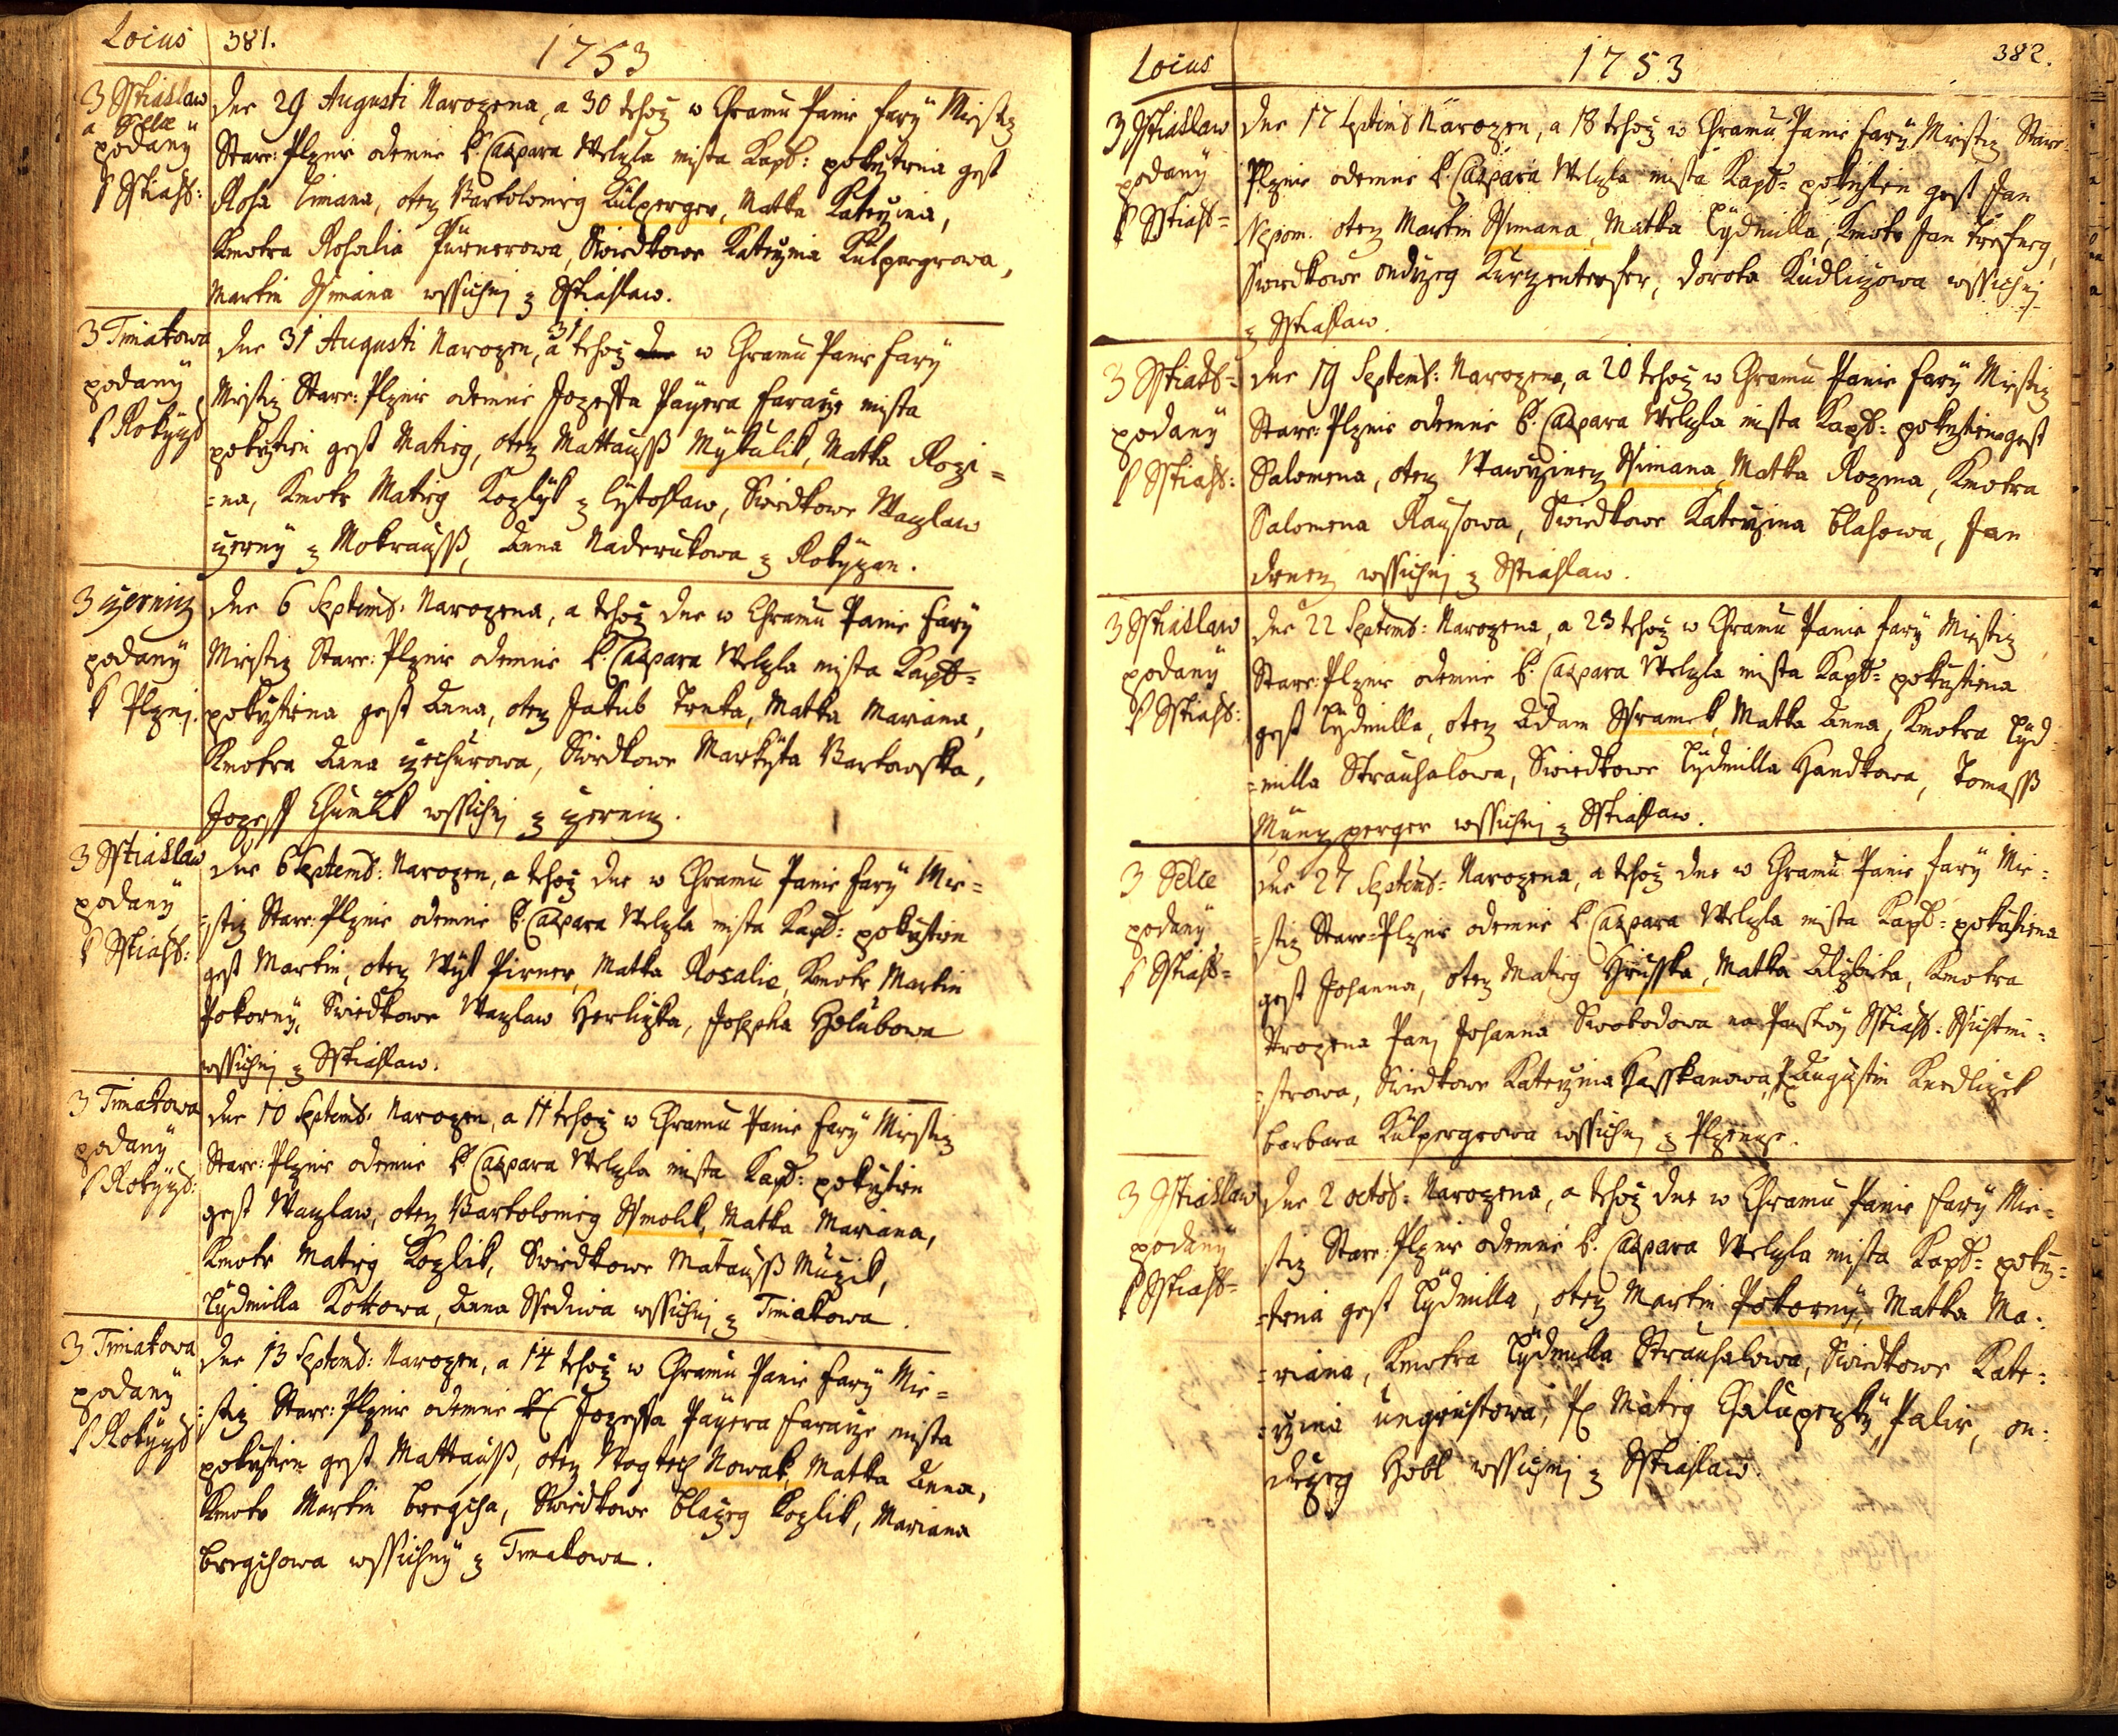 Locus 381.
1753
Z Sstiaslaw
a Selce
podaný
k Sstiasl:
Dne 29 Augusti Narozena, a 30 tehož w Chramu Panie Farÿ Miestiz
Stare: Plznie odemne P. Caspara Welzla mista Kapl: pokrztiena gest
Rosa Limana, otez Bartolomieg Külperger, Matka Katerzina,
Kmotra Rosalia Pürnerowa, Swiedkowe Katerzina Külpergrowa,
Martin Ssimana wssichni z Sstiaslaw.
Z Timakowa
podaný
k Rokyzd
Dne 31 Augusti Narozen, a 31 tehož w Chramu Panie Farÿ
Miestiz Stare: Plznie odemne Jozeffa Paÿera Faraze mista
pokrztien gest Matieg, otez Mattauss Mÿkulik, Matka Rozi=
=na, Kmotr Matieg Kozlÿk z Lÿtohlaw, Swiedkowe Wazlaw
Czerný z Mokrauss, Anna Naderukowa z Rokÿzan.
Z Czerniz
podaný
k Plzni.
Dne 6 Septemb: Narozena, a tehož dne w Chramu Panie Farÿ
Miestiz Stare: Plznie odemne P. Caspara Welzla mista Kapl=
pokrztiena gest Anna, otez Jakub Trnka, Matka Mariana,
Kmotra Anna Czechurowa, Swiedkowe Markÿta Bartowska,
Jozeff Chumlik wssichni z Czerniz.
Z Sstiaslaw
podaný
k Sstiasl:
Dne 6 Septemb: Narozen, a tehož dne w Chramu Panie Farÿ Mie=
=stiz Stare: Plznie odemne P. Caspara Welzla mista Kapl: pokrztien
gest Martin, otez Wÿt Pirner, Matka Rosalie, Kmotr Martin
Pokorný, Swiedkowe Wazlaw Herlizka, Josepha Holubowa
wssichni z Sstiaslaw.
Z Timakowa
podaný
k Rokyzd:
Dne 10 Septemb: Narozen, a 11 tehož w Chramu Panie Farÿ Miestiz
Stare: Plznie odemne P. Caspara Welzla mista Kapl: pokrztien
gest Wazlaw, otez Bartolomieg Smolik, Matka Mariana,
Kmotr Matieg Kozlik, Swiedkowe Matauss Muzik,
Lÿdmilla Kottowa, Anna Ssediwa wssichni z Timakowa.
Z Timakowa
podaný
k Rokyzd
Dne 13 Septemb: Narozen, a 14 tehož w Chramu Panie Farÿ Mie=
=stiz Stare: Plznie odemne Jozeffa Paÿera Faraze mista
pokrztien gest Mattauss, otez Wogtiech Nowak, Matka Anna,
Kmotr Martin Bregcha, Swiedkowe Blazeg Kozlik, Mariana
Bregchowa wssichnÿ z Timakowa.
Locus
1753
382.
Z Sstiaslaw
podaný
k Sstiasl=
Dne 17 Septemb Narozen, a 18 tehož w Chramu Panie Farÿ Miestiz Stare=
Plznie odemne P. Caspara Welzla mista Kapl= pokrztien gest Jan
Nepom. otez Martin Ssimana, Matka Lÿdmilla, Kmotr Jan
Swiedkowe Ondrzeg Dorota Kudlizowa wssichni
z Sstiaslaw.
Z Sstiasl=
podaný
k Sstiasl:
Dne 19 Septemb: Narozena, a 20 tehož w Chramu Panie Farÿ Miestiz
Stare: Plznie odemne P. Caspara Welzla mista Kapl: pokrztiena gest
Salomena, otez Wawrzinez Ssimana, Matka Rozina, Kmotra
Salomena Rausowa, Swiedkowe Katerzina Blahowa, Jan
Denez wssichni z Sstiaslaw.
Z Sstiaslaw
podaný
k Sstiasl:
Dne 22 Septemb: Narozena, a 23 tehož w Chramu Panie Farÿ Miestiz
Stare: Plznie odemne P. Caspara Welzla mista Kapl= pokrztiena
gest Lÿdmilla, otez Adam Ssramek, Matka Anna, Kmotra Lÿd=
=milla Strauhalowa, Swiedkowe Lÿdmilla Handkowa, Tomass
Münzperger wssichni z Sstiaslaw.
Z Selce
podaný
k Sstiasl=
Dne 27 Septemb= Narozena, a tehož dne w Chramu Panie Farÿ Mie=
=stiz Stare=Plznie odemne P. Caspara Welzla mista Kapl= pokrztiena
gest Johanna, otez Matieg Hrusska, Matka Alzbieta, Kmotra
Urozena Pani Johanna Swobodowa na Panstwy Sstiasl:
=strowa, Swiedkowe Katerzina Hasskanowa, P. Augustin Knedlizek
Barbara Külpergrowa wssichni z Plzenze.
Z Sstiaslaw
podaný
k Sstiasl=
Dne 2 Octob= Narozena, a tehož dne w Chramu Panie Farÿ Mie=
stiz Stare: Plznie odemne P. Caspara Welzla mista Kapl= pokrz=
=tiena gest Lÿdmilla, otez Martin Pokorný, Matka Ma=
=riana, Kmotra Lÿdmilla Strauhalowa, Swiedkowe Kate=
=rzina Ungristowa, P. Matieg Chalupezkÿ, Palir, On=
drzeg Hobl wssichni z Sstiaslaw.